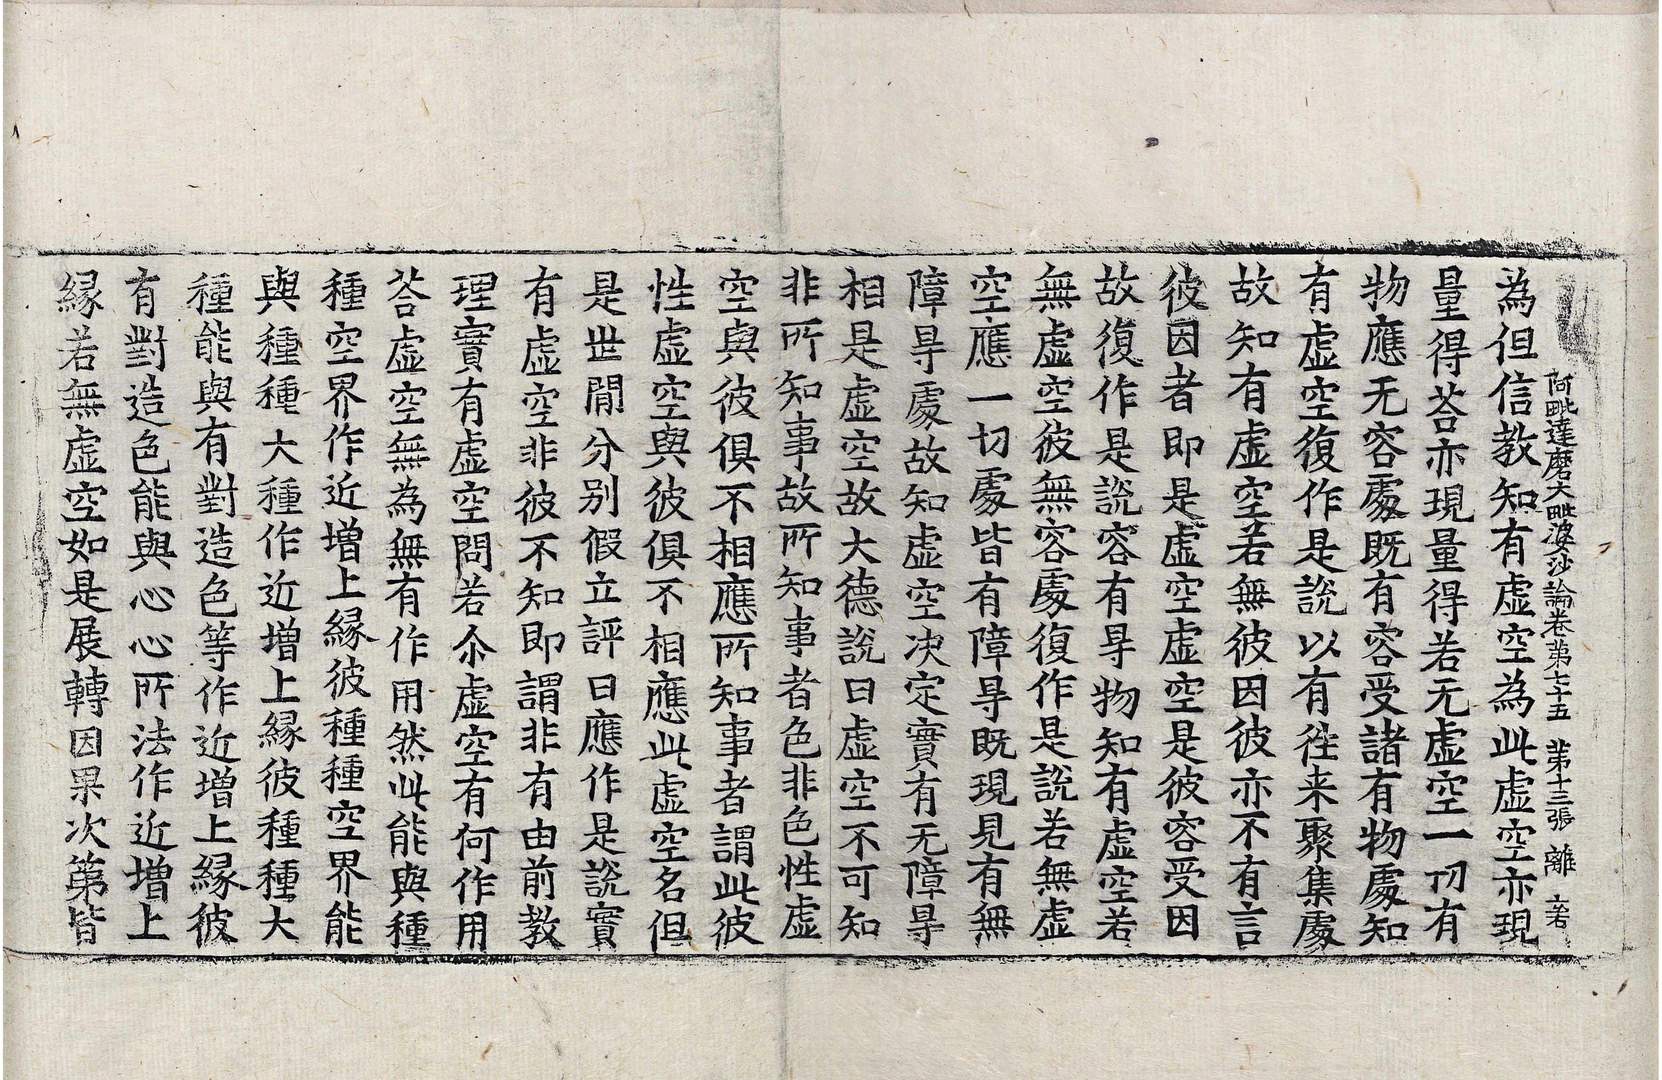 阿毗達磨大毗婆沙論卷第七十五　第十三張　離
為但信教知有虛空為此虛空亦現
量得荅亦現量得若无虛空一切有
物應无容處既有容受諸有物處知
有虛空復作是說以有往来聚集處
故知有虛空若無彼因彼亦不有言
彼因者即是虛空虛空是彼容受因
故復作是說容有㝵物知有虛空若
無虛空彼無容處復作是說若無虛
空應一切處皆有障㝵既現見有無
障㝵處故知虛空决定實有无障㝵
相是虛空故大德說曰虛空不可知
非所知事故所知事者色非色性虛
空與彼俱不相應所知事者謂此彼
性虛空與彼俱不相應此虛空名但
是世閒分别假立評曰應作是說實
有虛空非彼不知即謂非有由前教
理實有虛空問若尒虛空有何作用
荅虛空無為無有作用然此能與種
種空界作近增上緣彼種種空界能
與種種大種作近增上緣彼種種大
種能與有對造色等作近增上緣彼
有對造色能與心心所法作近增上
緣若無虛空如是展轉因果次第皆